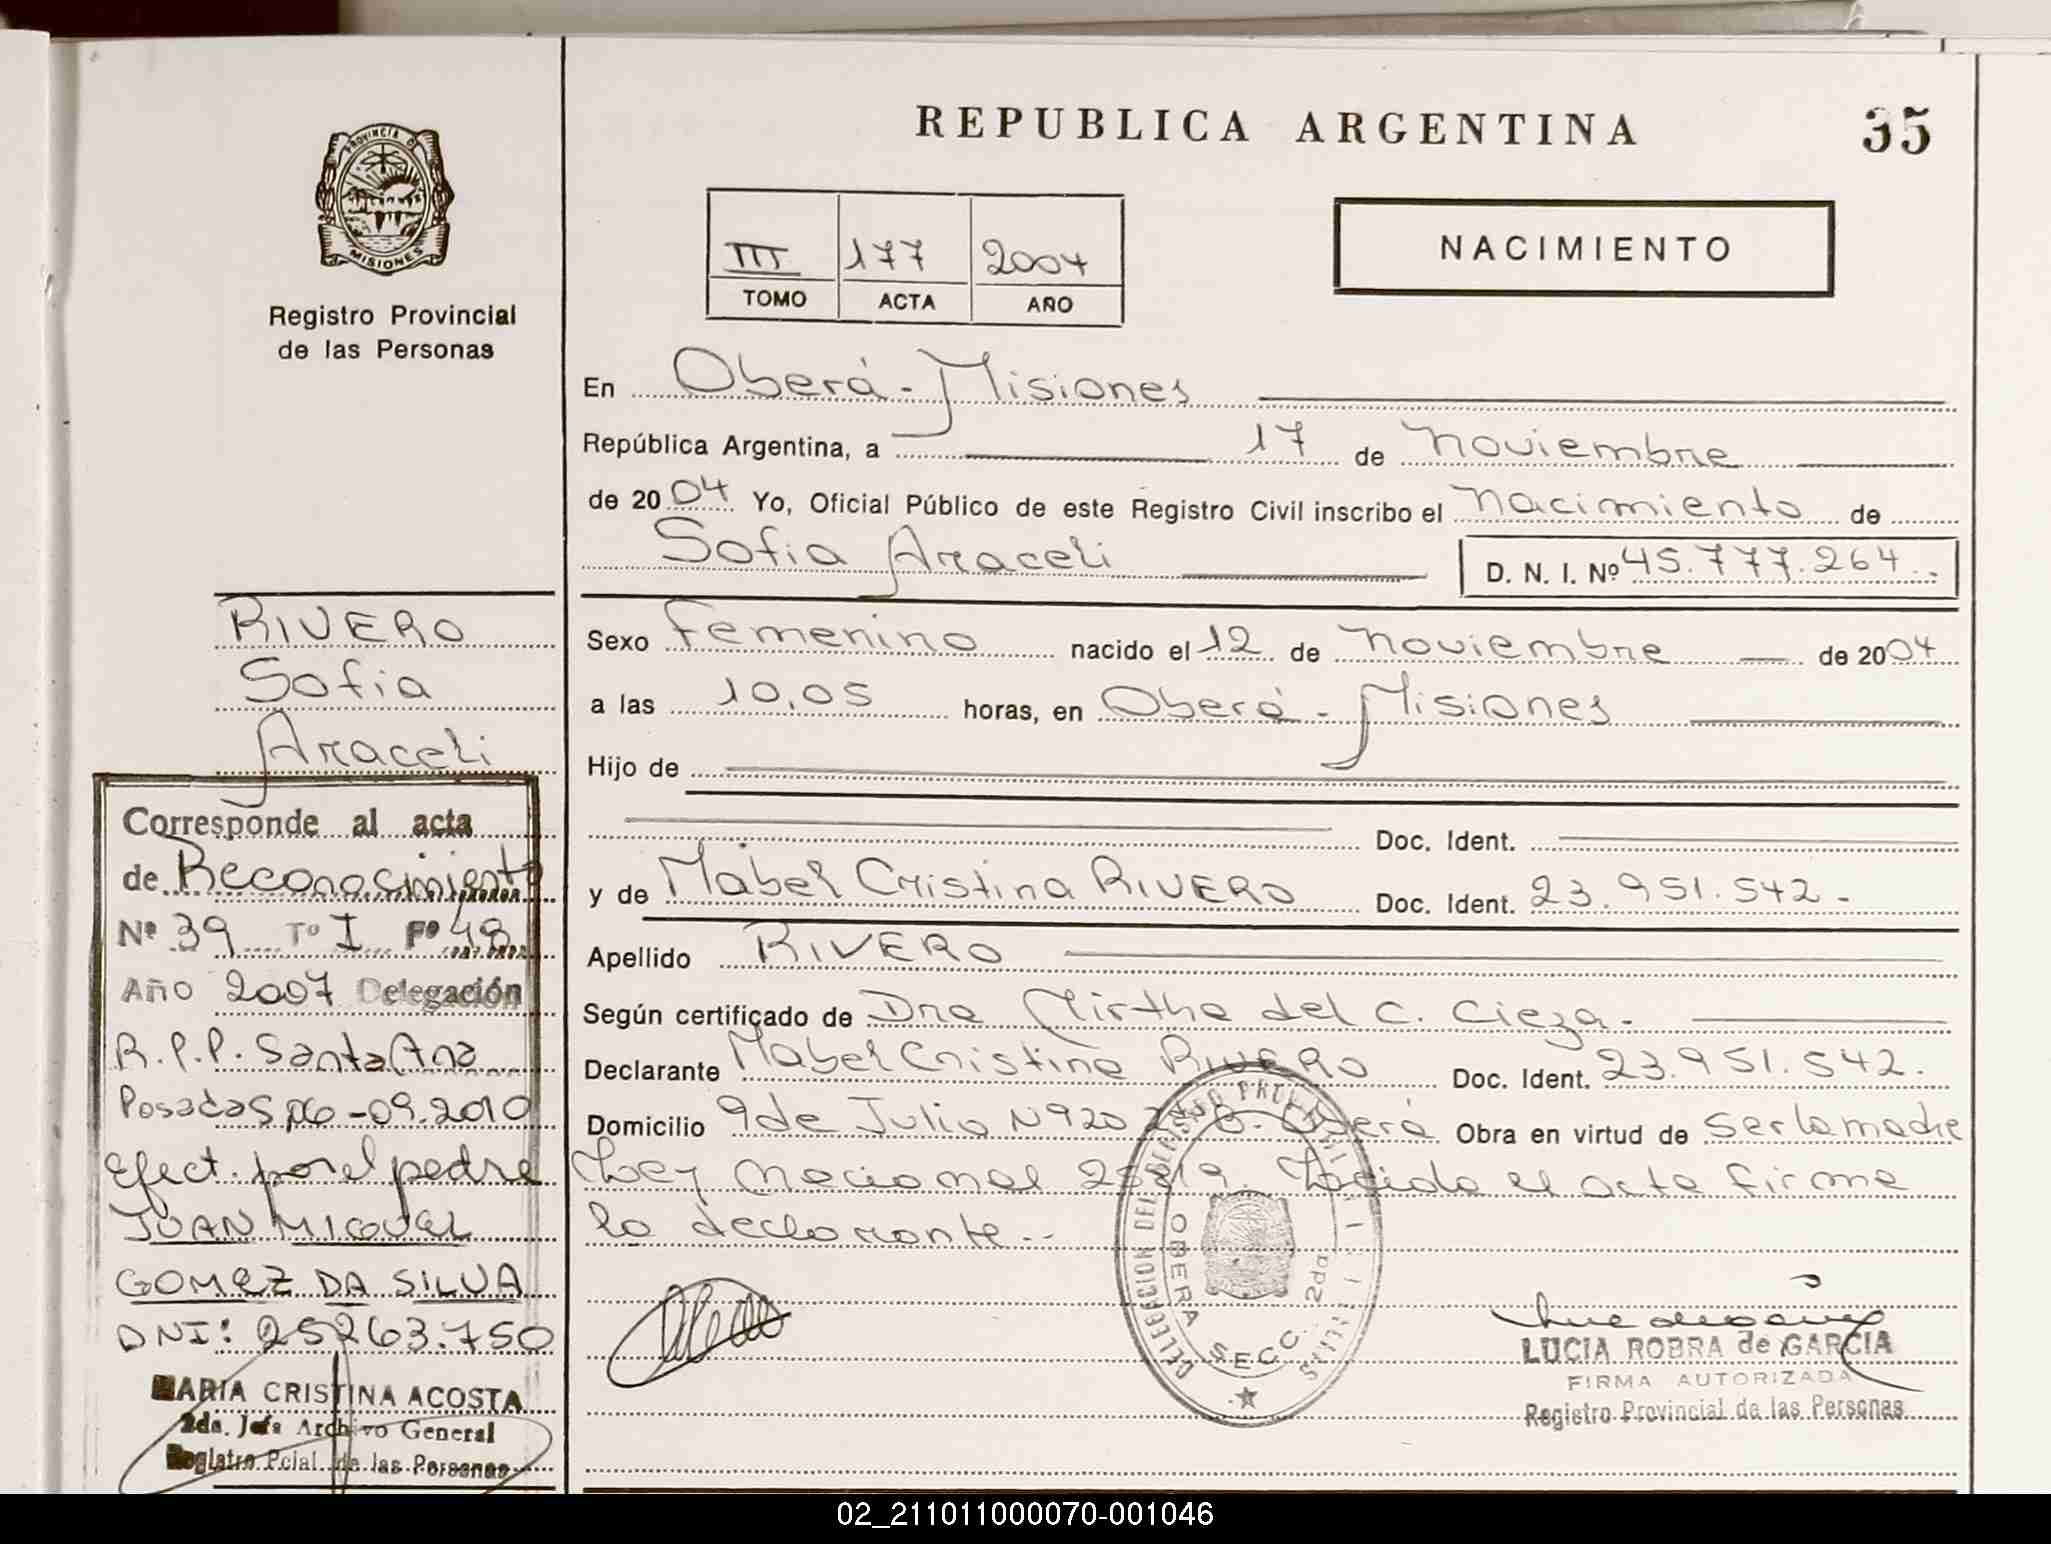 REPUBLICA ARGENTINA
35
PROVINCIA D
MISIONES
Registro Provincial
de las Personas
III 177 2004
TOMO ACTA AÑO
NACIMIENTO
En Oberá - Misiones
República Argentina, a 17 de Noviembre
de 2004 Yo, Oficial Público de este Registro Civil inscribo el Nacimiento de
Sofia Araceli D. N. I. Nº 45.777.264.
Sexo Femenino nacido el 12 de Noviembre de 2004
a las 10,05 horas, en Oberá - Misiones
Hijo de
Doc. Ident.
y de Mabel Cristina RIVERO Doc. Ident. 23.951.542.-
Apellido RIVERO
Según certificado de Dra Mirtha del C. Cieza.
Declarante Mabel Cristina RIVERO Doc. Ident. 23.951.542.
Domicilio 9 de Julio Nº 920 Oberá Obra en virtud de ser la madre
Ley Nacional Leida el acta firma
la declarante.-
OBERA SECC. 2da
LUCIA ROBRA de GARCIA
FIRMA AUTORIZADA
Registro Provincial de las Personas
RIVERO
Sofia
Araceli
Corresponde al acta
de Reconocimiento
Nº 39 Tº I Fº 48
Año 2007 Delegación
R.P.P. Santa Ana
Posadas 06-09.2010
Efect. por el padre
JUAN MIGUEL
GOMEZ DA SILVA
DNI: 25263.750
MARIA CRISTINA ACOSTA
2da. Jefa Archivo General
Registro Pcial. de las Personas
02_211011000070-001046